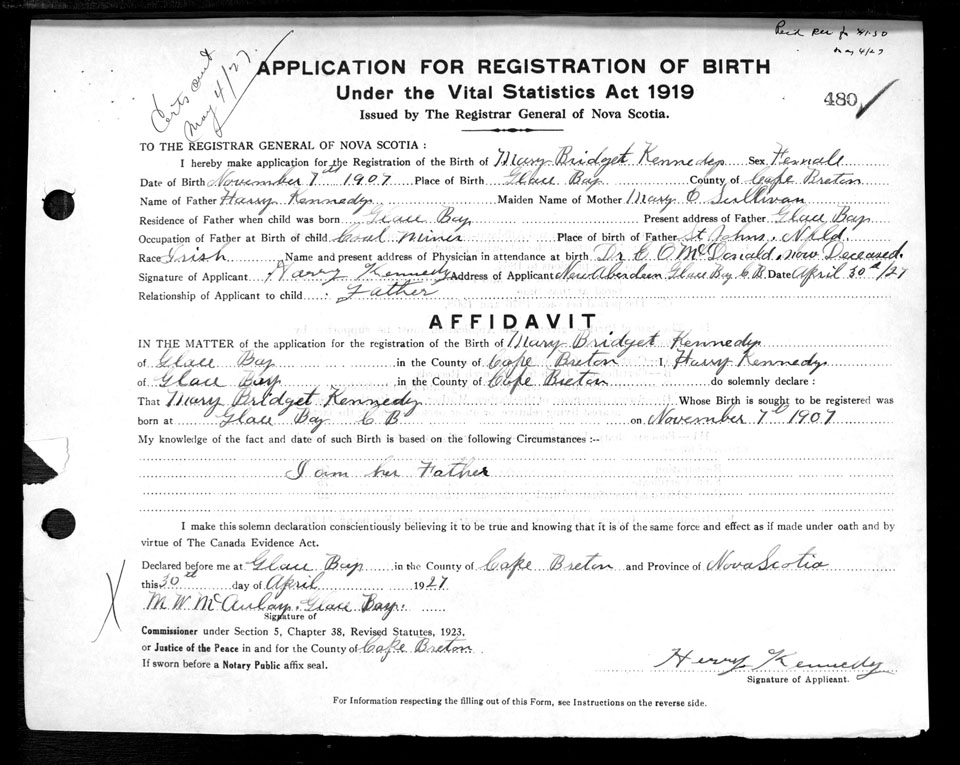 Certs out
May 4/27.
May 4/27
APPLICATION FOR REGISTRATION OF BIRTH
Under the Vital Statistics Act 1919
Issued by The Registrar General of Nova Scotia.
480
TO THE REGISTRAR GENERAL OF NOVA SCOTIA :
I hereby make application for the Registration of the Birth of Mary Bridget Kennedy Sex Female
Date of Birth November 7th 1907 Place of Birth Glace Bay County of Cape Breton
Name of Father Harry Kennedy Maiden Name of Mother Mary O Sullivan
Residence of Father when child was born Glace Bay Present address of Father Glace Bay
Occupation of Father at Birth of child Coal Miner Place of birth of Father St Johns, Nfld.
Race Irish Name and present address of Physician in attendance at birth Dr. E. O. McDonald, now Deceased.
Signature of Applicant Harry Kennedy Address of Applicant New Aberdeen Glace Bay C.B. Date April 30th/27
Relationship of Applicant to child : Father
AFFIDAVIT
IN THE MATTER of the application for the registration of the Birth of Mary Bridget Kennedy
of Glace Bay in the County of Cape Breton I, Harry Kennedy
of Glace Bay in the County of Cape Breton do solemnly declare :
That Mary Bridget Kennedy Whose Birth is sought to be registered was
born at Glace Bay C.B. on November 7th 1907
My knowledge of the fact and date of such Birth is based on the following Circumstances :--
I am her Father
I make this solemn declaration conscientiously believing it to be true and knowing that it is of the same force and effect as if made under oath and by
virtue of The Canada Evidence Act.
Declared before me at Glace Bay in the County of Cape Breton and Province of Nova Scotia
this 30th day of April 1927
M. W. McAulay, Glace Bay.
Signature of
Commissioner under Section 5, Chapter 38, Revised Statutes, 1923,
or Justice of the Peace in and for the County of Cape Breton
If sworn before a Notary Public affix seal.
Harry Kennedy
Signature of Applicant.
For Information respecting the filling out of this Form, see Instructions on the reverse side.